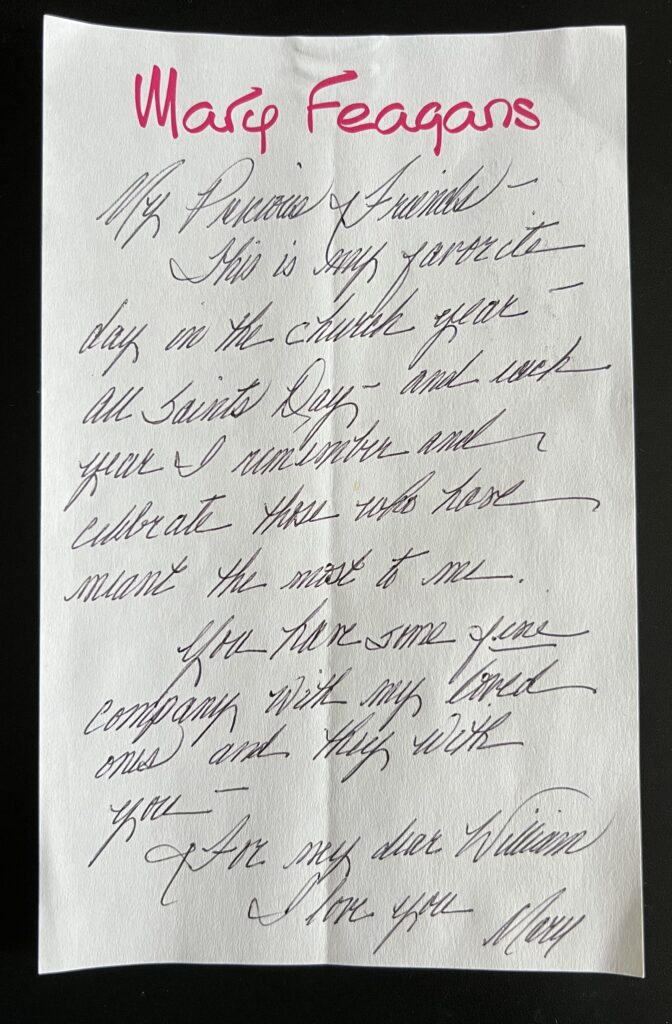 Mary Feagans
My Precious Friends –
This is my favorite
day in the church year –
All Saints Day – and each
year I remember and
celebrate those who have
meant the most to me.
You have some fine
company with my loved
ones and they with
you –
For my dear William
I love you
Mary